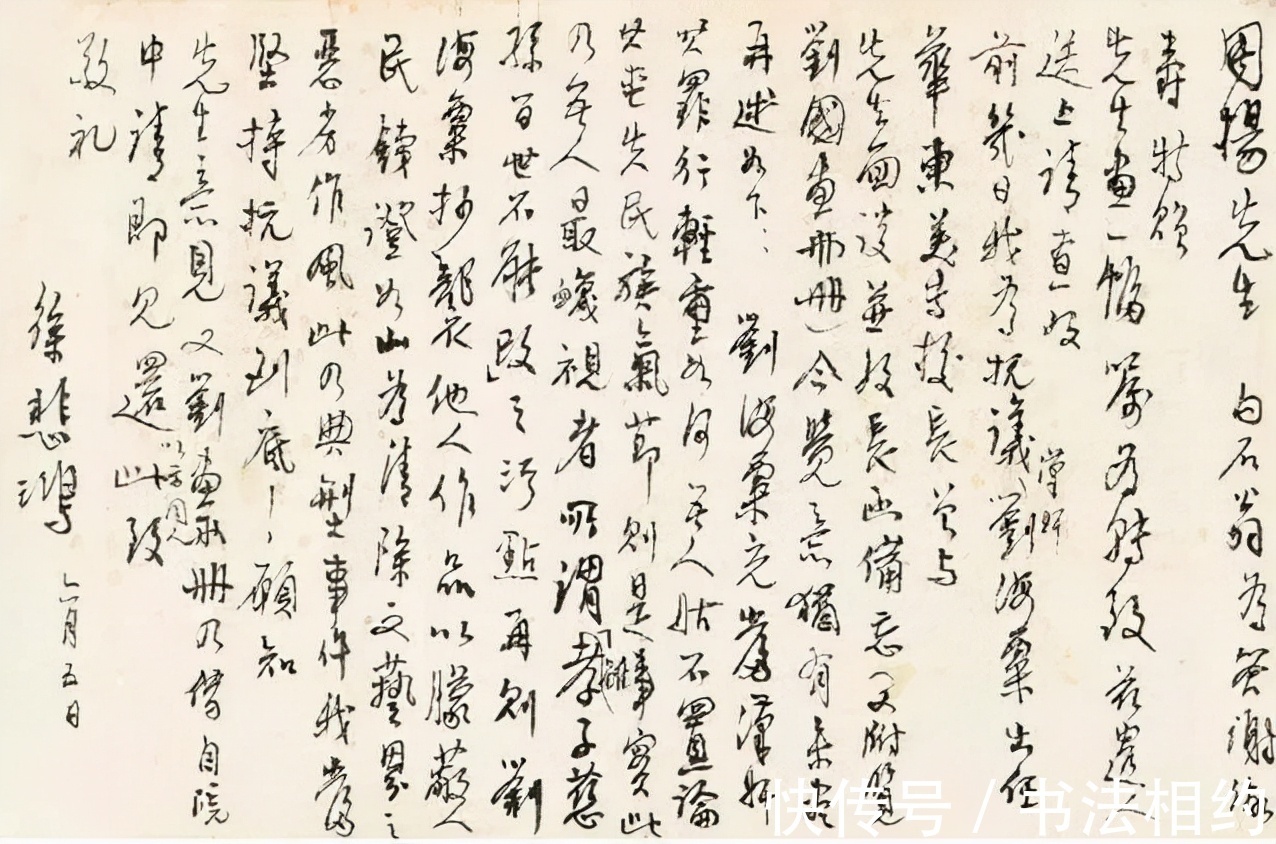 周揚先生 白石翁為答謝你
壽特貽
先生畫一幅囑為轉致茲遣人
送上請查收
前幾日我為抗議劉海粟出任
華東美專校長曾與
先生面談並致長函備忘(又附覽
劉國畫冊(冊)今覺意猶有未盡
再述如下: 劉海粟充當漢奸
其罪行輕重如何吾人姑不置論
其喪失民族氣節則是事實此
乃吾人最衊視者所謂「雖孝子慈
孫百世不能改」之污點再則劉
海粟抄襲他人作品以矇蔽人
民鐵證如山為清除文藝界之
惡劣作風此乃典型事件我當
堅持抗議到底、、願知
先生意見又劉畫冊乃借自院
中請即見還此致
敬礼
徐悲鴻
六月五日
快传号/书法相约